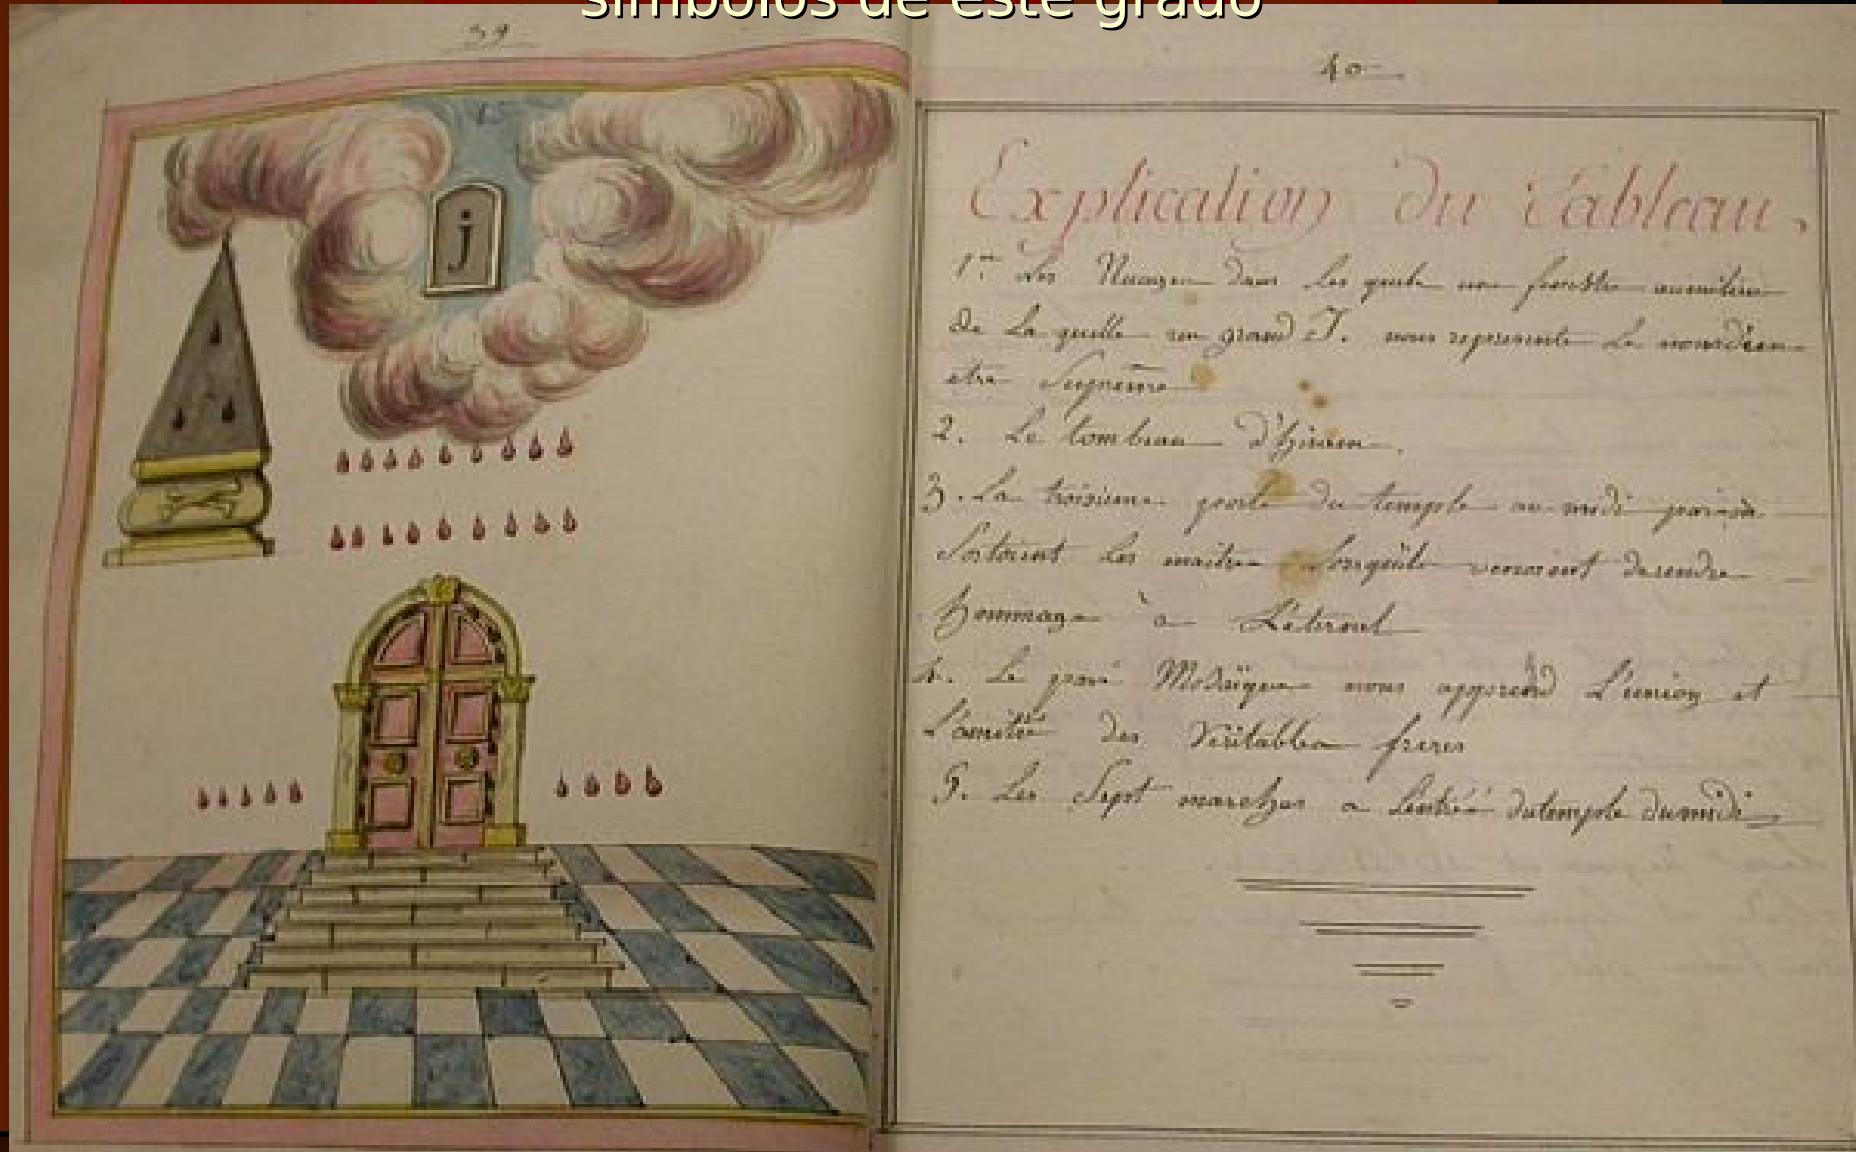 símbolos de este grado
39
j
40
Explication du Tableau,
1er. Les Nuages dans les quels une fenêtre au milieu
de La quelle un grand J. nous represente Le nom d'un
etre Supreme
2. Le tombeau d'hiram.
3. La troisieme porte du temple au midi par où
Sortoient les maitres Lorsqu'ils venoient de rendre
hommage à L'éternel
4. Le pavé Mosaïque nous apprend L'union et
L'amitié des Véritables freres
5. Les Sept marches a Lentrée du temple du midi